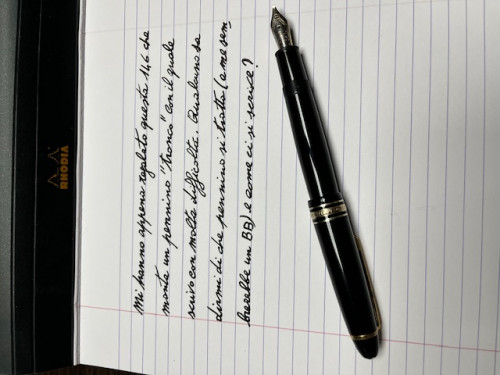 Mi hanno appena regalato questa 146 che
monta un pennino "tronco" con il quale
scrivo con molta difficoltà. Qualcuno sa
dirmi di che pennino si tratta (a me sem
brerebbe un BB) e come ci si scrive?
RHODIA